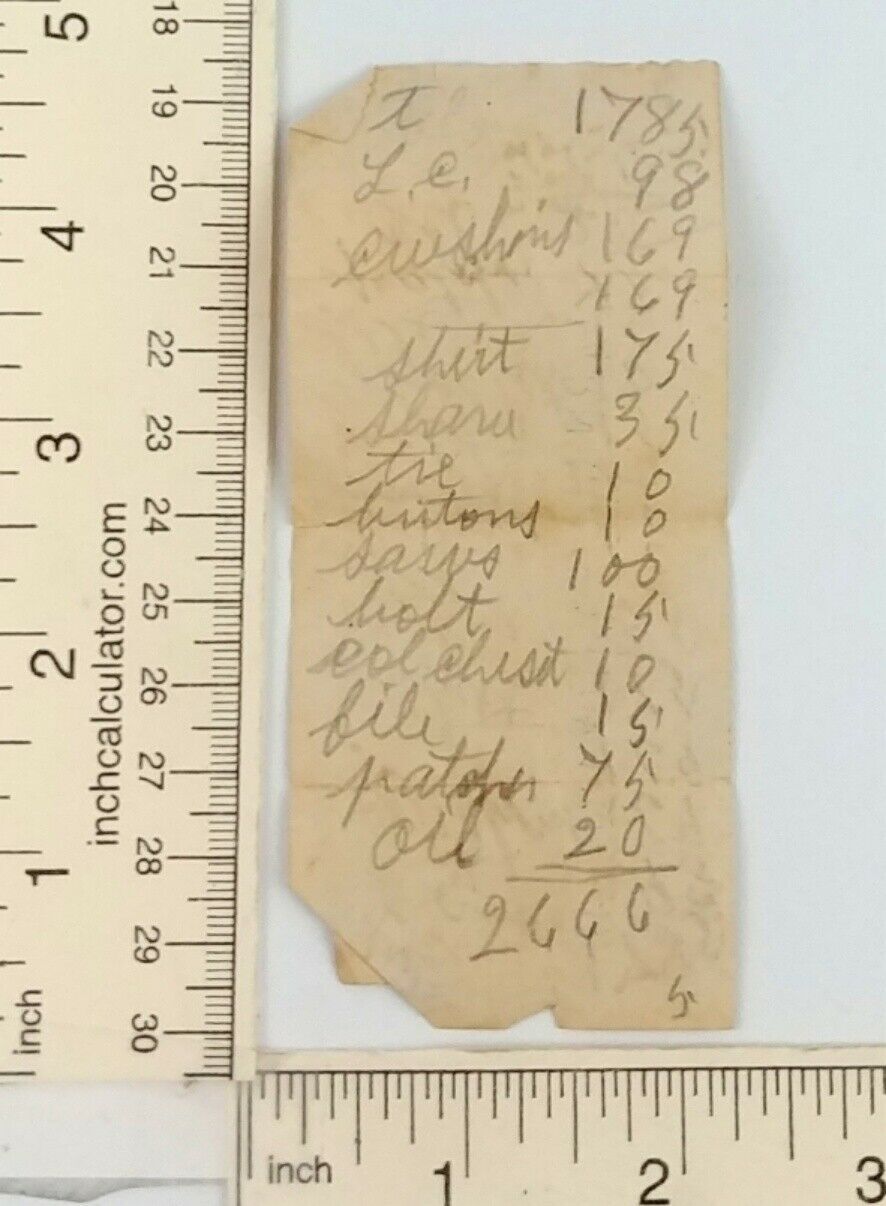 5
4
3
2
1
inch
inchcalculator.com
18
19
20
21
22
23
24
25
26
27
28
29
30
T 1785
L.C. 98
cushions 169
169
shirt 175
share 35
tie 10
butons 10
saws 100
bolt 15
col chisit 10
file 15
patches 75
oil 20
2666
5
inch
1
2
3